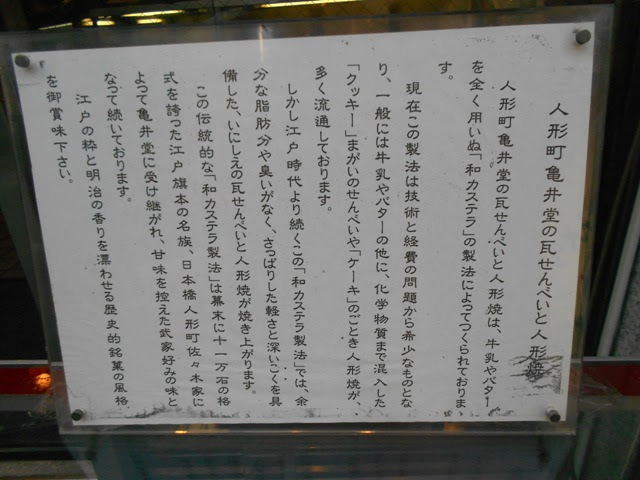 人形町亀井堂の瓦せんべいと人形焼
人形町亀井堂の瓦せんべいと人形焼は、牛乳やバター
を全く用いぬ「和カステラ」の製法によってつくられておりま
す。
現在この製法は技術と経費の問題から希少なものとな
り、一般には牛乳やバターの他に、化学物質まで混入した
「クッキー」まがいのせんべいや「ケーキ」のごとき人形焼が、
多く流通しております。
しかし江戸時代より続くこの「和カステラ製法」では、余
分な脂肪分や臭いがなく、さっぱりした軽さと深いこくを具
備した、いにしえの瓦せんべいと人形焼が焼き上がります。
この伝統的な「和カステラ製法」は幕末に十一万石の格
式を誇った江戸旗本の名族、日本橋人形町佐々木家に
よって亀井堂に受け継がれ、甘味を控えた武家好みの味と
なって続いております。
江戸の粋と明治の香りを漂わせる歴史的銘菓の風格
を御賞味下さい。